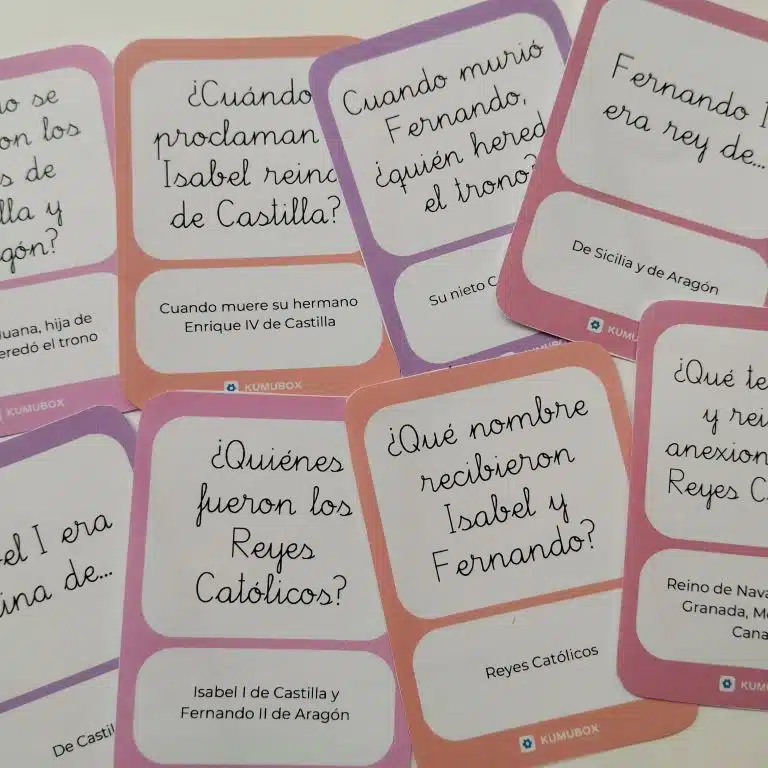 se
los
de
y
Juana, hija de
el trono
KUMUBOX
¿Cuándo
proclaman
Isabel
de Castilla?
Cuando muere su hermano
Enrique IV de Castilla
KUMUBOX
Cuando murió
Fernando,
¿quién
el trono?
Su nieto
Fernando
era rey de...
De Sicilia y de Aragón
I era
de...
¿Quiénes
fueron los
Reyes
Católicos?
Isabel I de Castilla y
Fernando II de Aragón
¿Qué nombre
recibieron
Isabel y
Fernando?
Reyes Católicos
KUMUBOX
¿Qué
y
Reyes
Reino de
Granada,
De